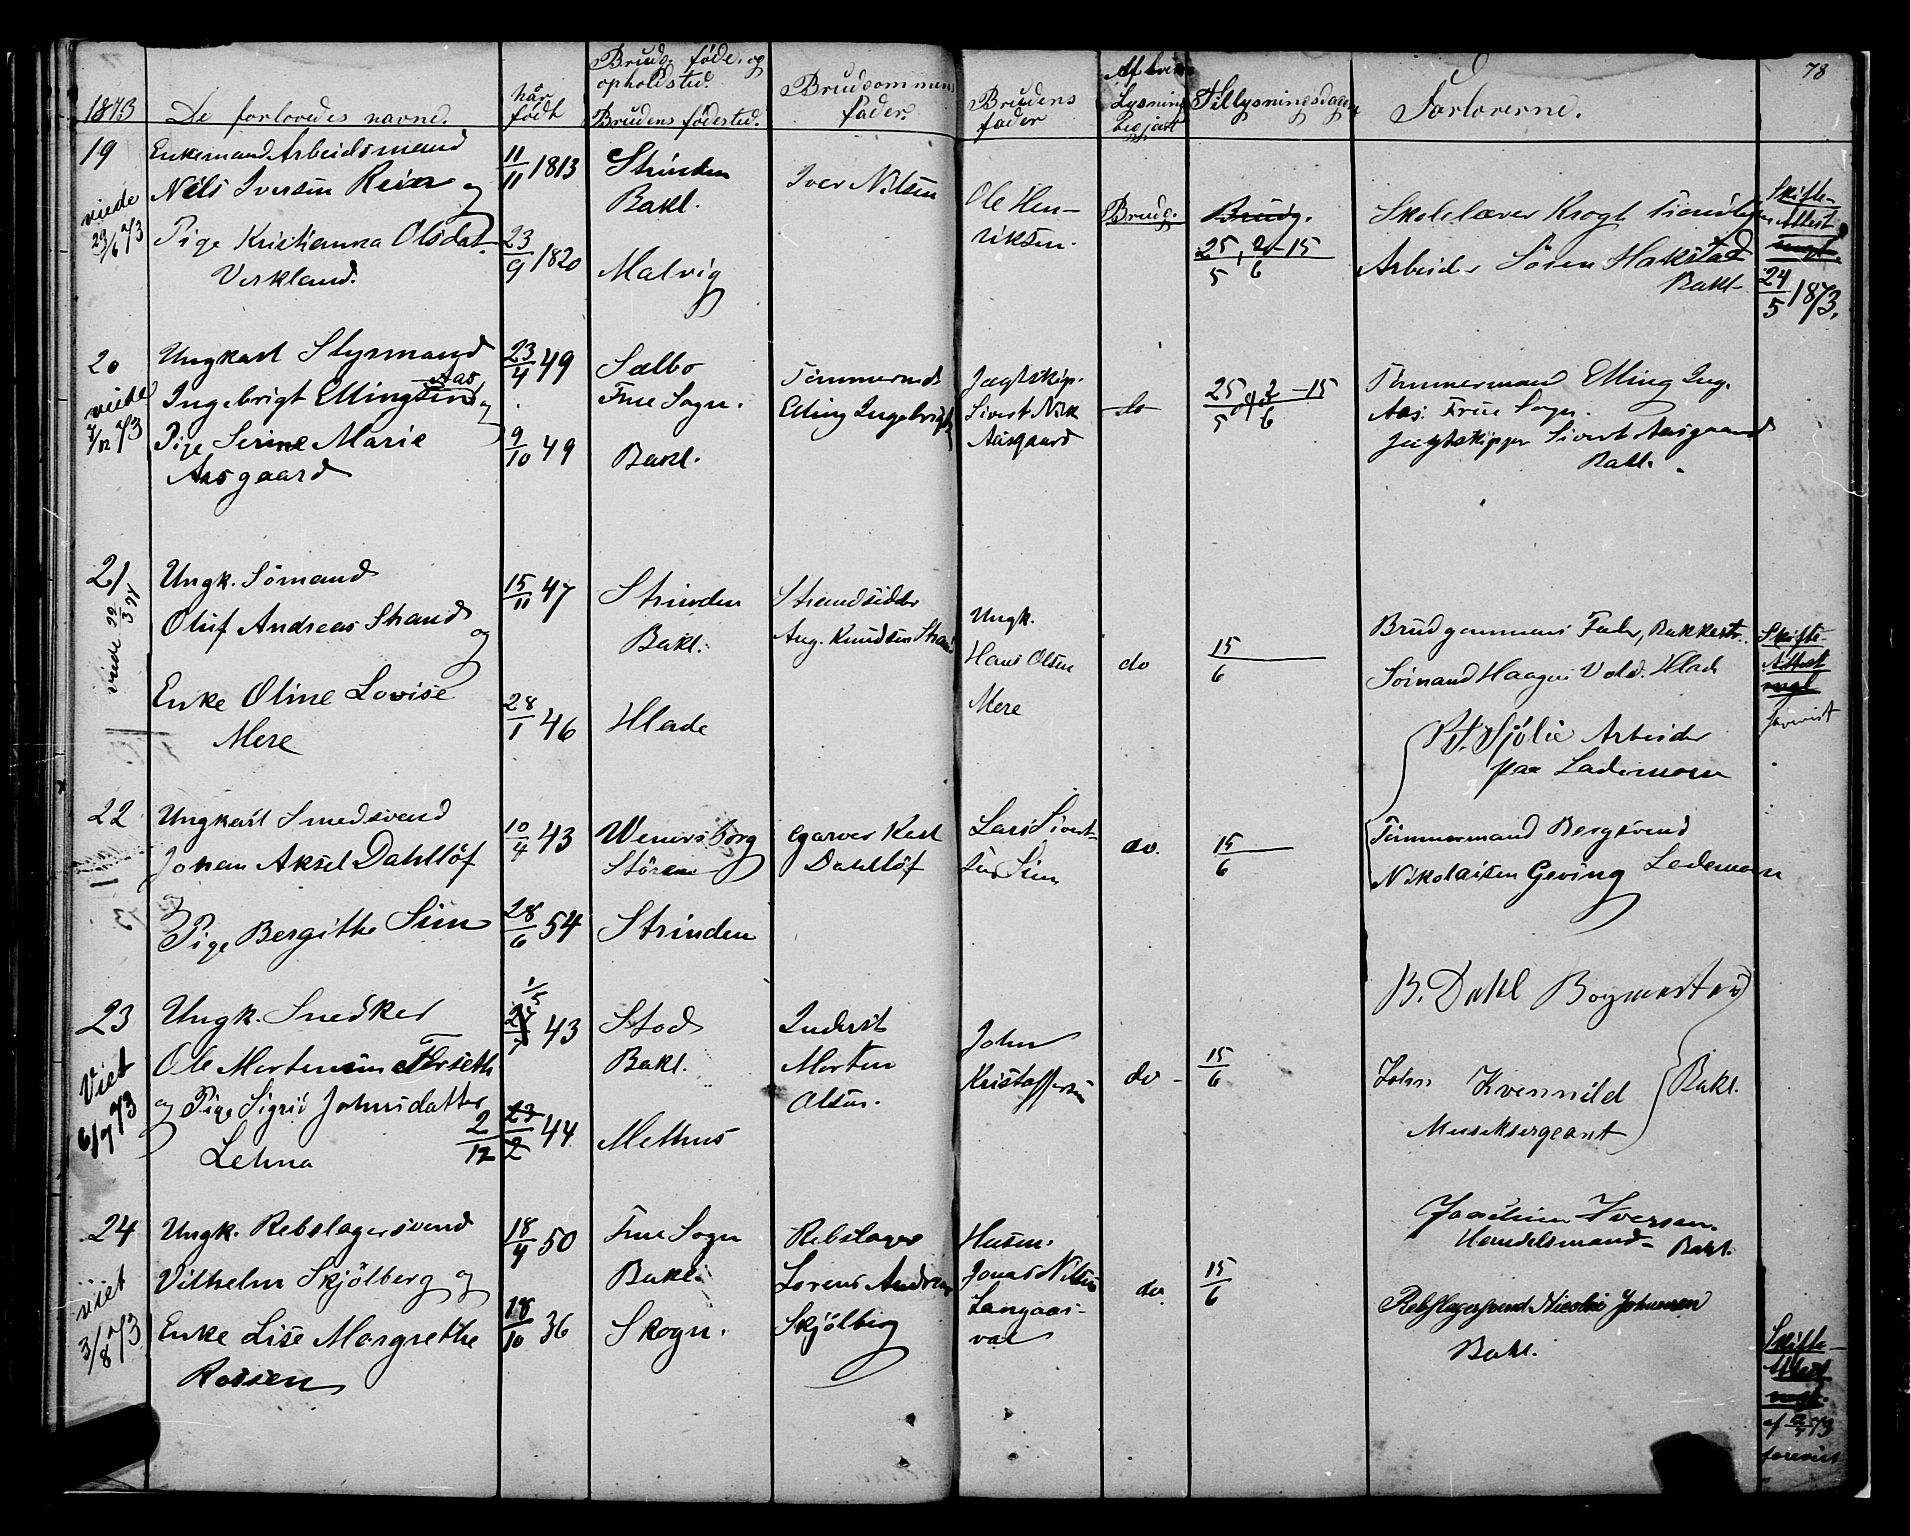 78
1873
De forlovedes navne.
når født
Brudg. føde. og opholdsted.
Brudens fødested.
Brudgommens fader.
Brudens fader
Af hvem Lysning begjært
Tillysningsdagen
Forloverne.
19
viede 29/6 73
Enkemand Arbeidsmand
Nils Iversen Reier og
Pige Kristianna Olsdat.
Verkland.
11/11 1813
23/9 1820
Strinden
Bakl.
Malvig
Iver Nilsen
Ole Hen-
riksen.
Brudg.
Brudg.
25/5, 2/6 - 15
Skolelærer Krogt
Arbeider Sören Hakstad
Bakl.
Skifte-
Attest
24/5 1873.
20
viede 7/12 73
Ungkarl Styrmand
Aas
Ingebrigt Ellingsen og
Pige Serine Marie
Aasgaard
23/4 49
9/10 49
Sælbo
Frue Sogn.
Bakl.
Tömmermd
Elling Ingebrigts
Jægtskip.
Sivert Nilk
Aasgaard
do
25/5 og 2/6 - 15
Tömmermand Elling Ing.
Aas. Frue Sogn.
Jægtskipper Sivert Aasgaard
Bakl.
21
viede 22/3 74
Ungk. Sömand
Oluf Andreas Strand
og
Enke Oline Lovise
Mere
15/11 47
28/1 46
Strinden
Bakl.
Hlade
Strandsidder
Aug. Knudsen Strand
Ungk.
Hans Olsen
Mere
do
15/6
Brudgommens Fader, Bakkestr.
Sömand Haagen Vold. Hlade
Skifte-
Attest
forevist
22
Ungkarl Smedsvend
Johan Aksel Dahllöf
og
Pige Bergithe Sim
10/4 43
28/6 54
Wenersborg
Stören
Strinden
Garver Karl
Dahllöf
Lars Sivert-
sen Sim
do.
15/6
P. T. Sjölie Arbeider
paa Lademoen
Tömmermand Bergsvend
Nikolaisen Geving Lademoen
23
Viet 6/7 73
Ungk. Snedker
Ole Mortensen Forseth
og Pige Sigrid Johnsdatter
Lehna
1/5
43
2/12 23/2 44
Stod
Bakl.
Melhus
Inderst
Morten
Olsen.
John
Kristoffersen
do -
15/6
B. Dahl Bogmester
John Kvernild
Musiksergeant
Bakl.
24
viet 3/8 73
Ungk. Rebslagersvend
Vilhelm Skjölberg og
Enke Lise Margrethe
Rossen
18/4 50
18/10 36
Frue Sogn
Bakl.
Skogn.
Rebslager
Lorens Andreas
Skjölberg
Husm.
Jonas Nilsen
Langaas-
val
do.
15/6
Joachim Iversen.
Handelsmand - Bakl.
Rebslagersvend Nicolai Johansen
Bakl.
Skifte-
Attest
forevist